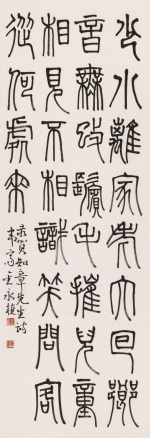 少小離家老大回鄉
音無改鬢毛摧兒童
相見不相識笑問客
從何處來
录賀知章先生诗